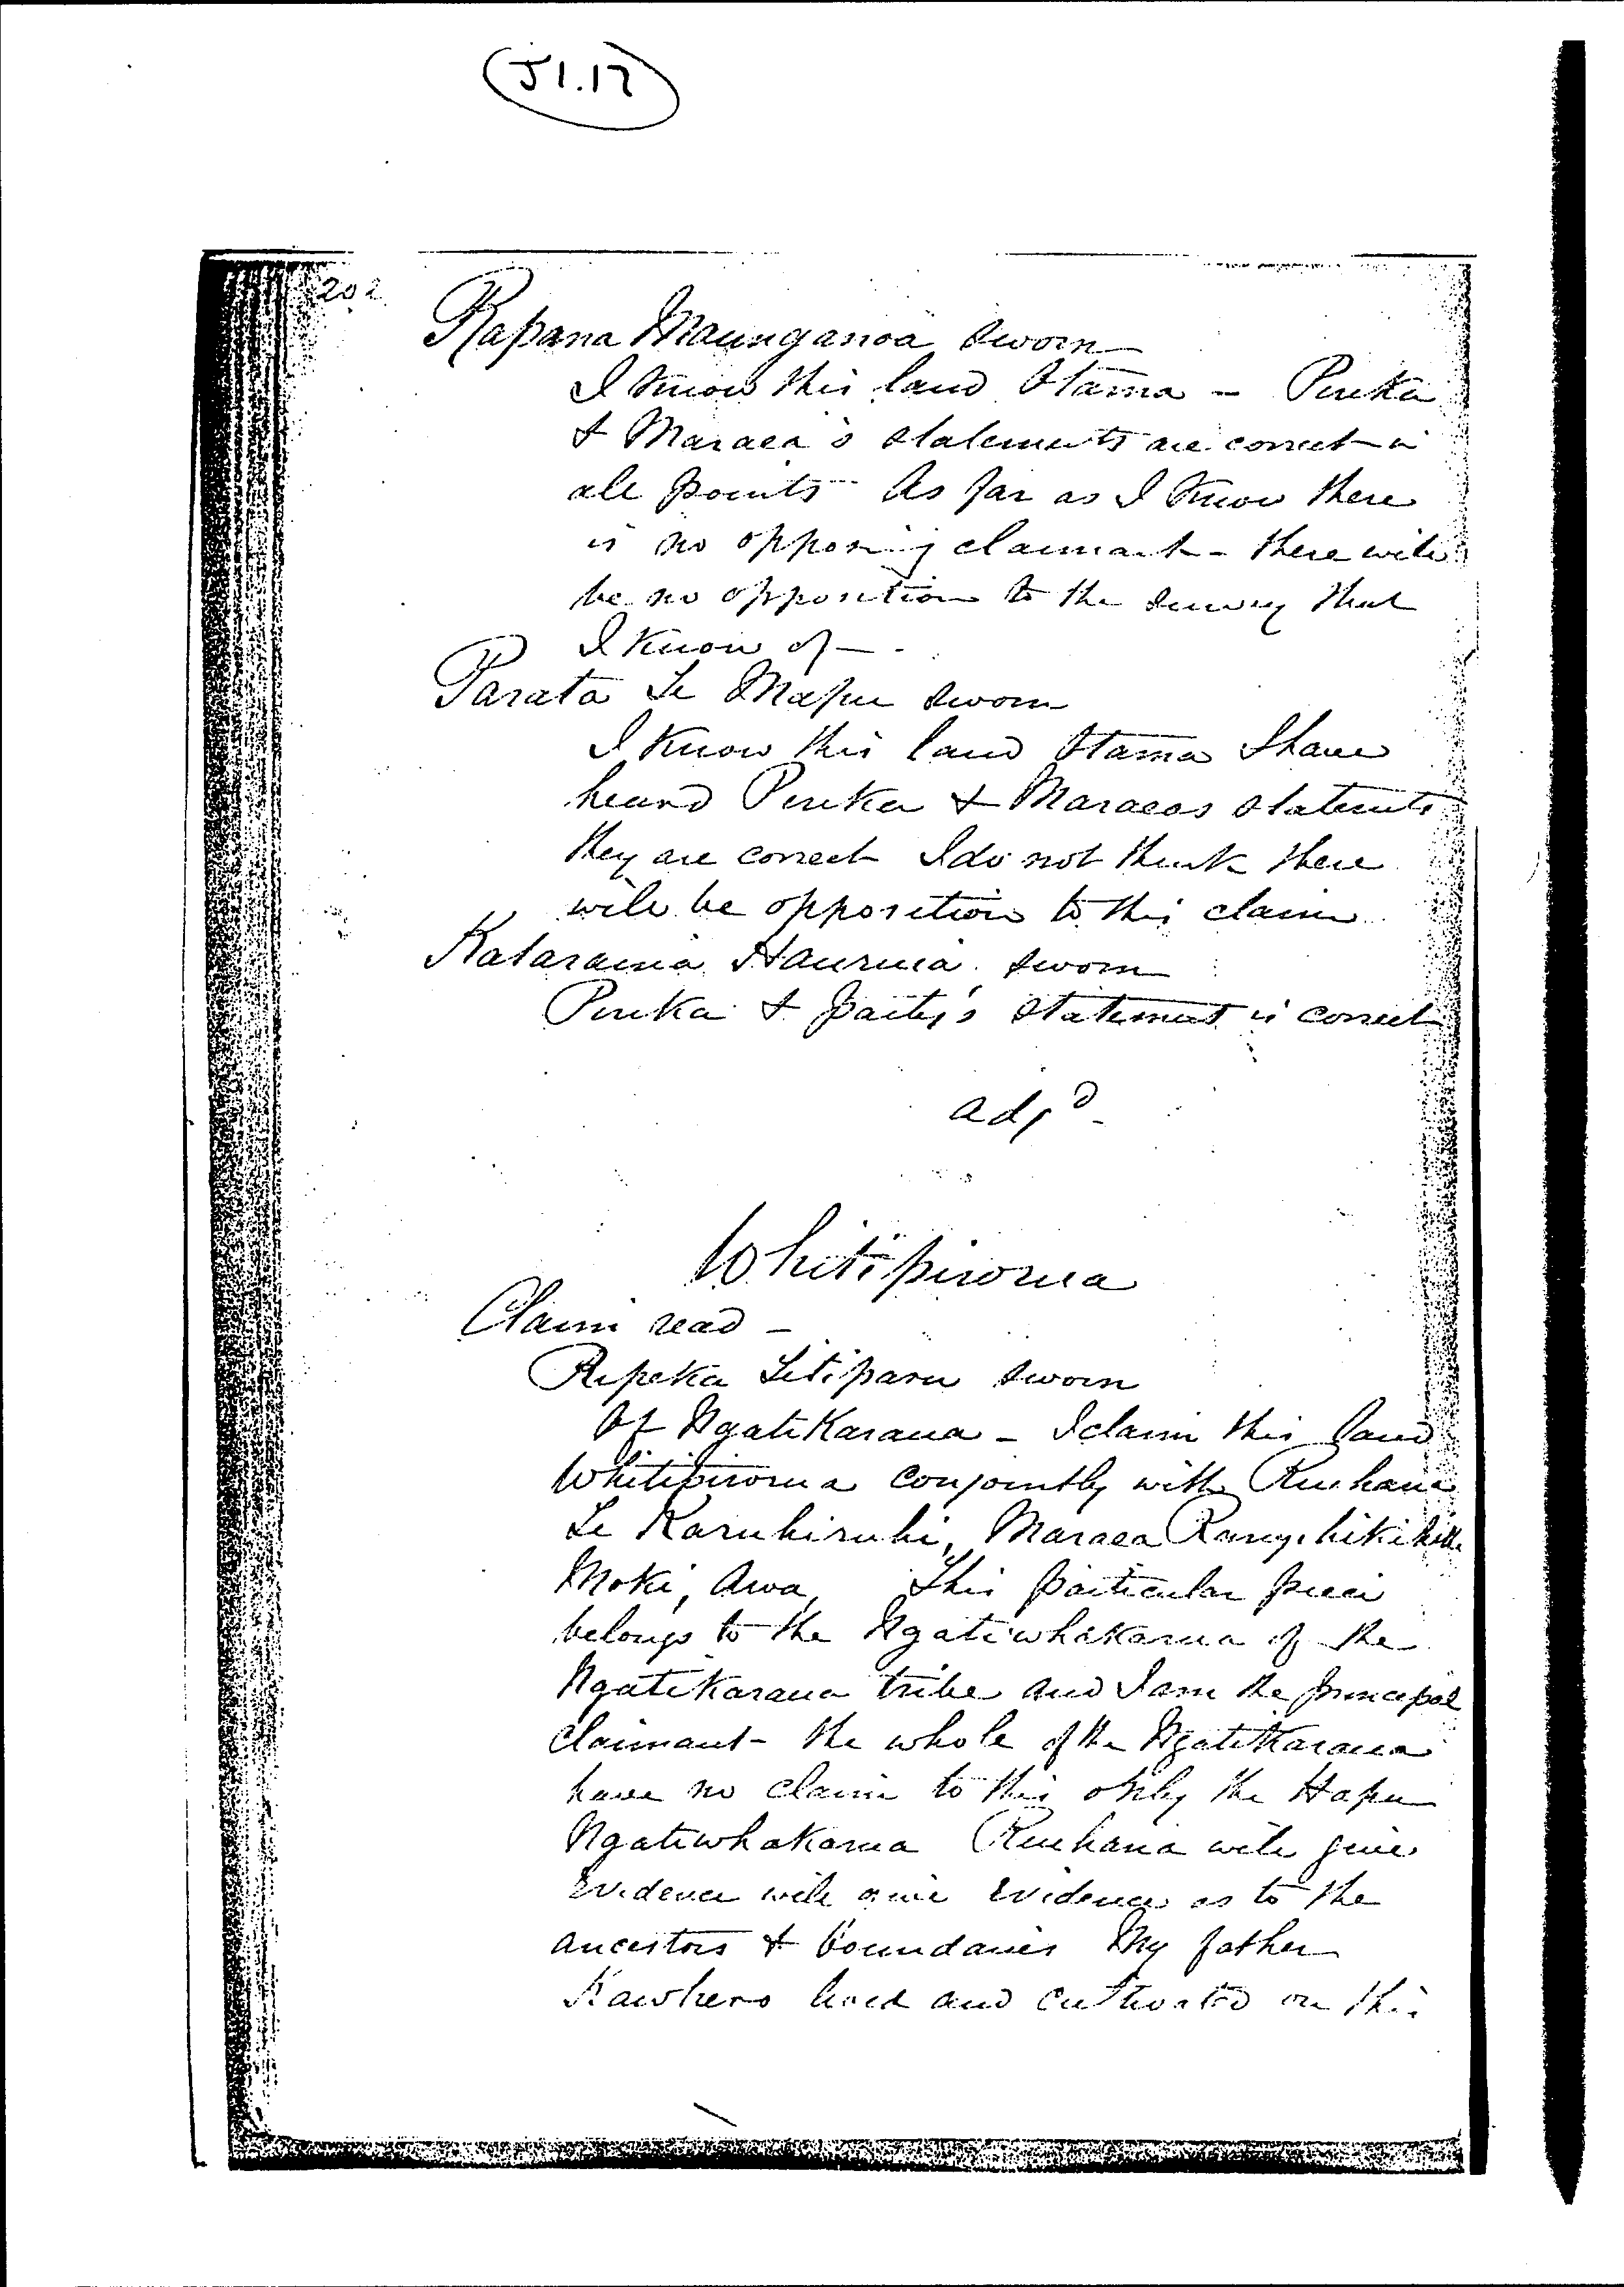 J1.17
202
Rapana Maunganoa sworn
I know this land Otama - Pireka
& Maraea's statements are correct in
all points As far as I know there
is no opposing claimant - there will
be no opposition to the survey that
I know of -
Parata Te Mapu sworn
I know this land Otama I have
heard Pireka & Maraeas statements
they are correct I do not think there
will be opposition to this claim
Katarania Hauruia sworn
Pireka & party's statement is correct
adjd -
Whitipirorua
Claim read -
Ripeka Titiparu sworn
Of Ngatikaraua - I claim this land
Whitipirorua conjointly with
Te Karuhiruhi, Maraea
Moki, Awa, This particular piece
belongs to the Ngatiwhakarua of the
Ngatikaraua tribe and I am the principal
claimant - the whole of the Ngatikaraua
have no claim to this only the Hapu
Ngatiwhakarua will give
evidence will give evidence as to the
ancestors & boundaries My father
Kawhero lived and cultivated on this